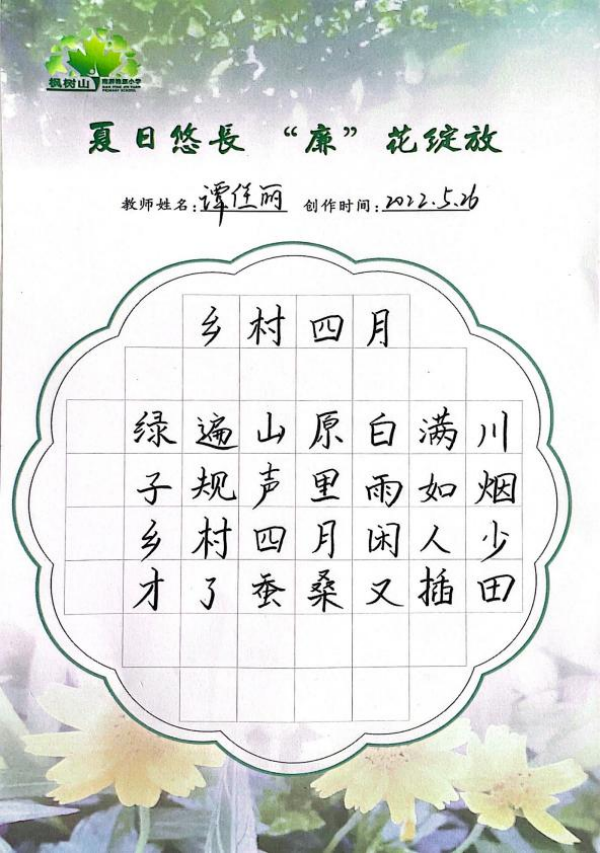 枫树山
NAN YUAN JIN YUAN
PRIMARY SCHOOL
夏日悠長 “廉” 花绽放
教师姓名:谭佳丽 创作时间:2022.5.26
乡村四月
绿遍山原白满川
子规声里雨如烟
乡村四月闲人少
才了蚕桑又插田